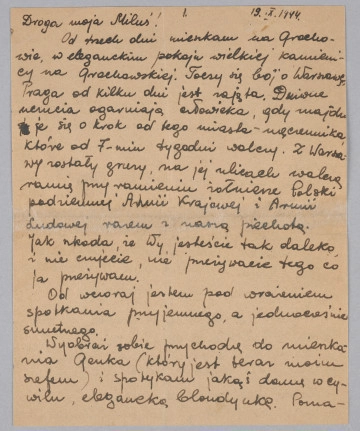 1.
19.IX.1944.
Droga moja Miluś!
Od trzech dni mieszkam na Grocho-
wie, w eleganckim pokoju wielkiej kamieni-
cy na Grochowskiej. Toczy się bój o Warszawę,
Praga od kilku dni jest zajęta. Dziwne
uczucia ogarniają człowieka, gdy znajdu
je się o krok od tego miasta-męczennika,
które od 7-miu tygodni walczy. Z Warsza
wy zostały gruzy, na jej ulicach walczą
ramię przy ramieniu żołnierze Polski
podziemnej Armii Krajowej i Armii
Ludowej razem z naszą piechotą.
Jak szkoda, że Wy jesteście tak daleko
i nie czujecie, nie przeżywacie tego co
ja przeżywam.
Od wczoraj jestem pod wrażeniem
spotkania przyjemnego, a jednocześnie
smutnego.
Wyobraź sobie przychodzę do mieszka
nia Genka (który jest teraz moim
szefem) i spotykam jakąś damę w cy-
wilu, elegancką blondynkę. Pozna-